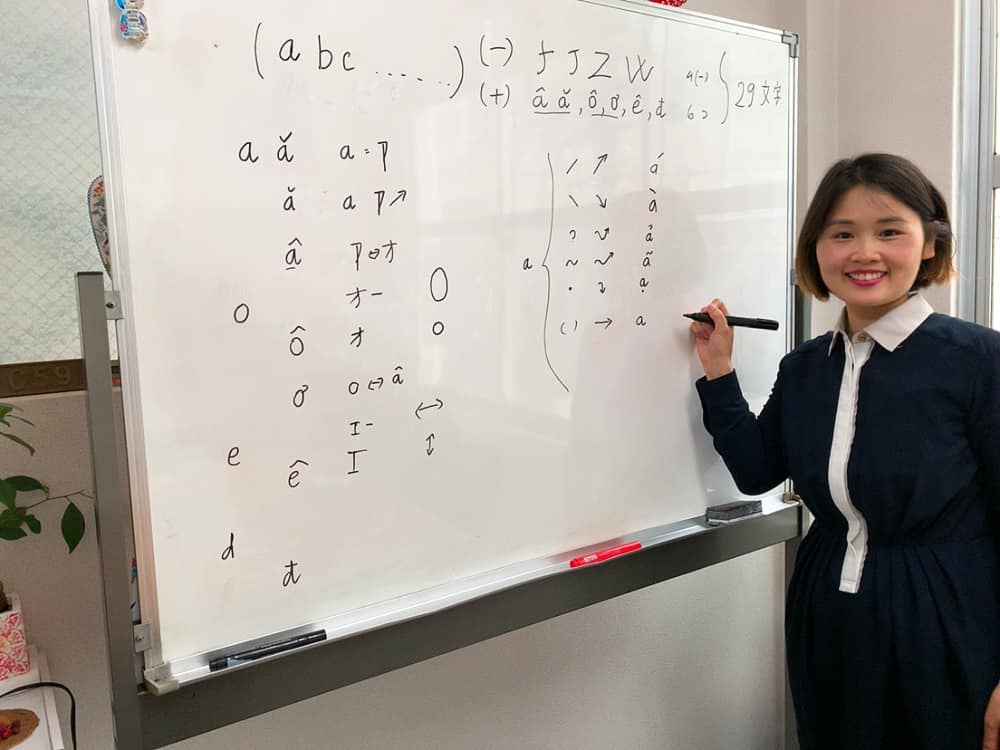 (a b c ......) (-) f J Z W 4(-)
(+) â ă, ô, ơ, ê, đ 6コ } 29文字
a ǎ a = ア
ă a ア↗
â ア⇔オ
オー O
o ô オ o
ơ o ⇔ â
エー ↔
e ê エ ↕
d đ
a
/ ↗ á
\ ↘ à
ả
~ ã
. ạ
( ) → a
C59